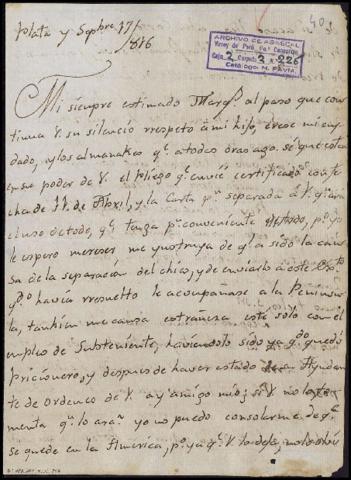 40
Plata y Sepbre 17/
/816
ARCHIVO DE ABASCAL
Virrey del Perú
Caja 2 Carpeta 2 226
Catálogo N. PAVIA
Mi siempre estimado Marqs. al paso que con
tinua V. su silencio rrespeto á mi hijo, crece mi cuy
dado, y los almanakes qe. a todas oras ago. sé que está
en su poder de V. el Pliego qe. envié certificado con fe
cha de 11 de Abril, y la Carta pr. separada
el uso de todo, qe. tenga pr. conveniente
le espero merecer me ynstruya de qe. a sido la cau
sa de la separacion del chico, y de enviarlo a este
qdo. havia rresuelto le acompañase a la Peninsu
la, tambien me causa estrañeza esté solo con él
empleo de Subteniente, haviendolo sido ya qdo. quedó
pricionero, y despues de haver estado de Ayudan
te de ordenes de V. ay amigo mio; si V. no la
menta qe. lo ara, yo no puedo consolarme de qe.
se quede en la America, pr. ya qe. V. lo deja, no lo